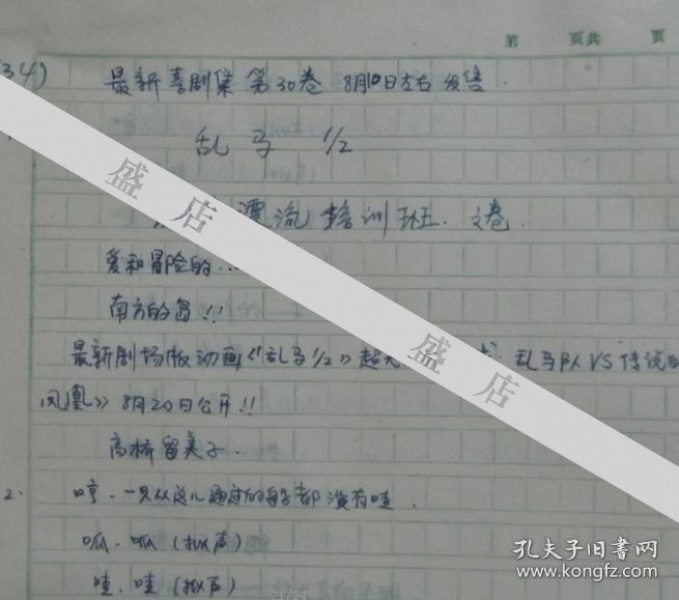 第 页共 页
34)
最新喜剧集 第30卷 8月10日左右 发售.
乱马 1/2
漂流培训班. 之卷.
爱和冒险的...
南方的岛!!
最新剧场版动画《乱马1/2》超无 乱马队VS传说
凤凰》8月20日公开!!
高桥留美子.
2. 哼.一只从这儿通过的 都没有哇.
呱.呱(拟声)
哇.哇(拟声)
盛店
盛店
孔夫子旧书网
www.kongfz.com
21/21